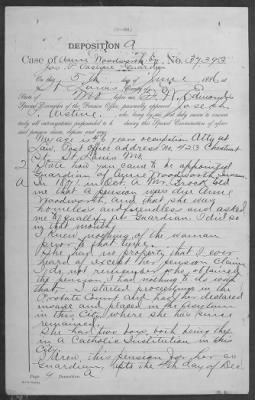 DEPOSITION A
Case of Annie Woodsworth by No. 347393
Jos. T. Guardian
On this 5th day of June 1886, at
St. Louis County of
State of Mo. before me, Edmonds a
Special Examiner of the Pension Office, personally appeared Joseph
who, being by me first duly sworn to answer
truly all interrogatories propounded to him during this Special Examination of afore-
said pension claim, deposes and says:
My age is 46 years occupation Atty at
Law. Post office address No 423 Chestnut
St. St Louis Mo
2. State how you came to be appointed
Guardian of Annie Woodsworth Insane.
A. In 1881 in Oct. A Mr. Brooks told
me that a person was there Annie
Woodsworth, and that she was
homeless and friendless and asked
me to qualify as Guardian. I did so
in that month.
I knew nothing of the woman
prior to that time.
She had no property that I ever
heard of except her pension claim
I do not remember who obtained
the pension. I had nothing to do with
that. I started proceedings in the
Probate Court and had her declared
insane and placed in the Asylum
in this City, where she has since
remained.
She has two boys, both being
in a Catholic Institution in this
City.
I drew this pension for her as
Guardian, upto the 4th day of Dec
Page 4 Deposition A